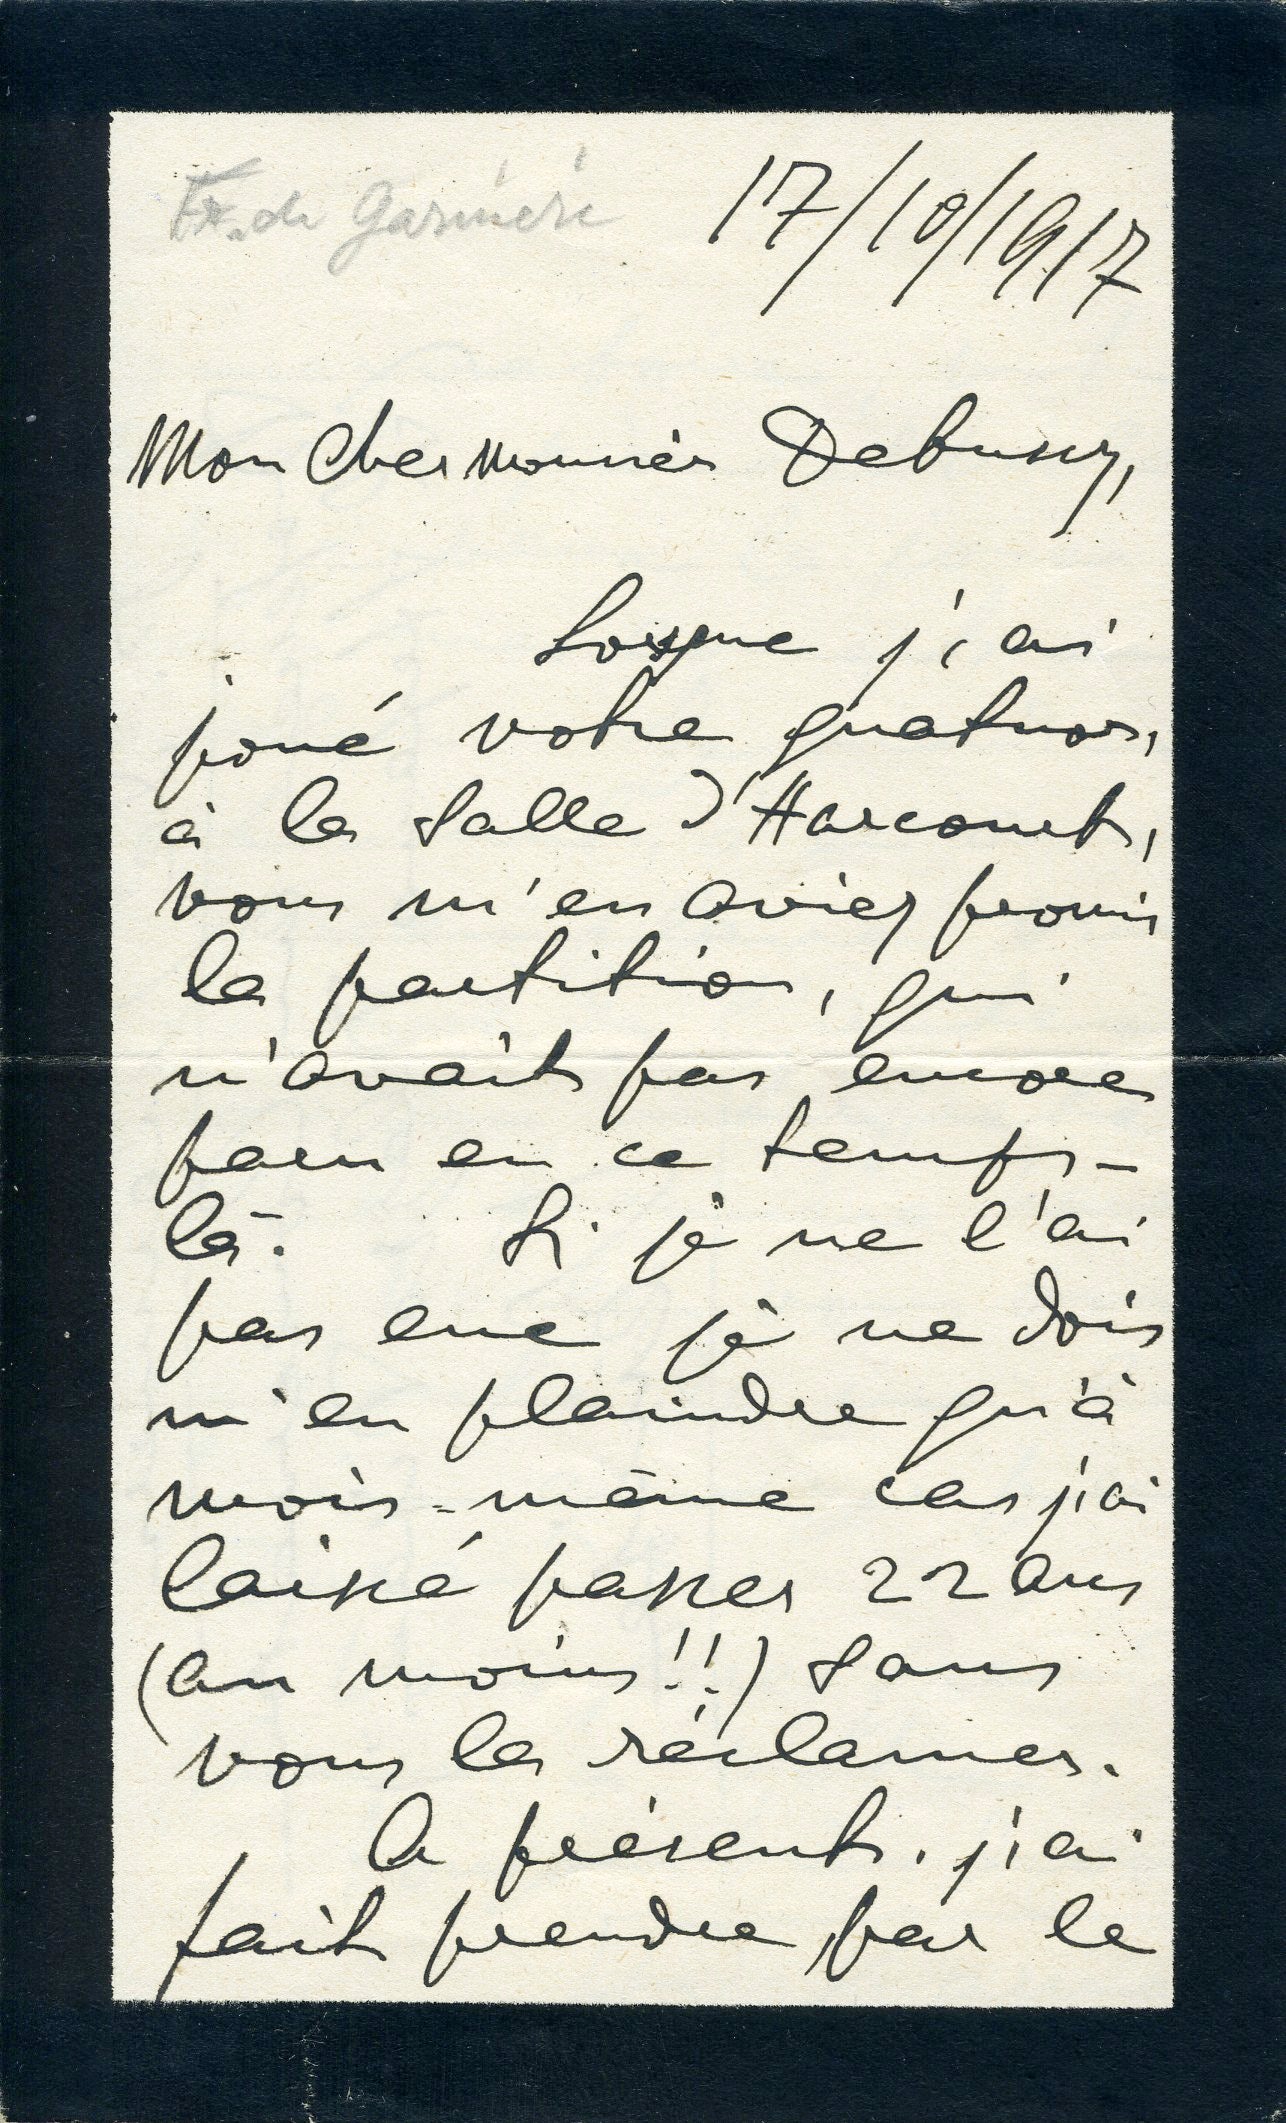 de
17/10/1917
Mon cher monsieur Debussy,
Lorsque j'ai
joué votre quatuor,
à la salle d'Harcourt,
vous m'en aviez promis
la partition, qui
n'avait pas encore
paru en ce temps-
là. Si je ne l'ai
pas eue je ne dois
m'en plaindre qu'à
mois-même car j'ai
laissé passer 22 ans
(au moins!!) sans
vous la réclamer.
A présent, j'ai
fait prendre par le